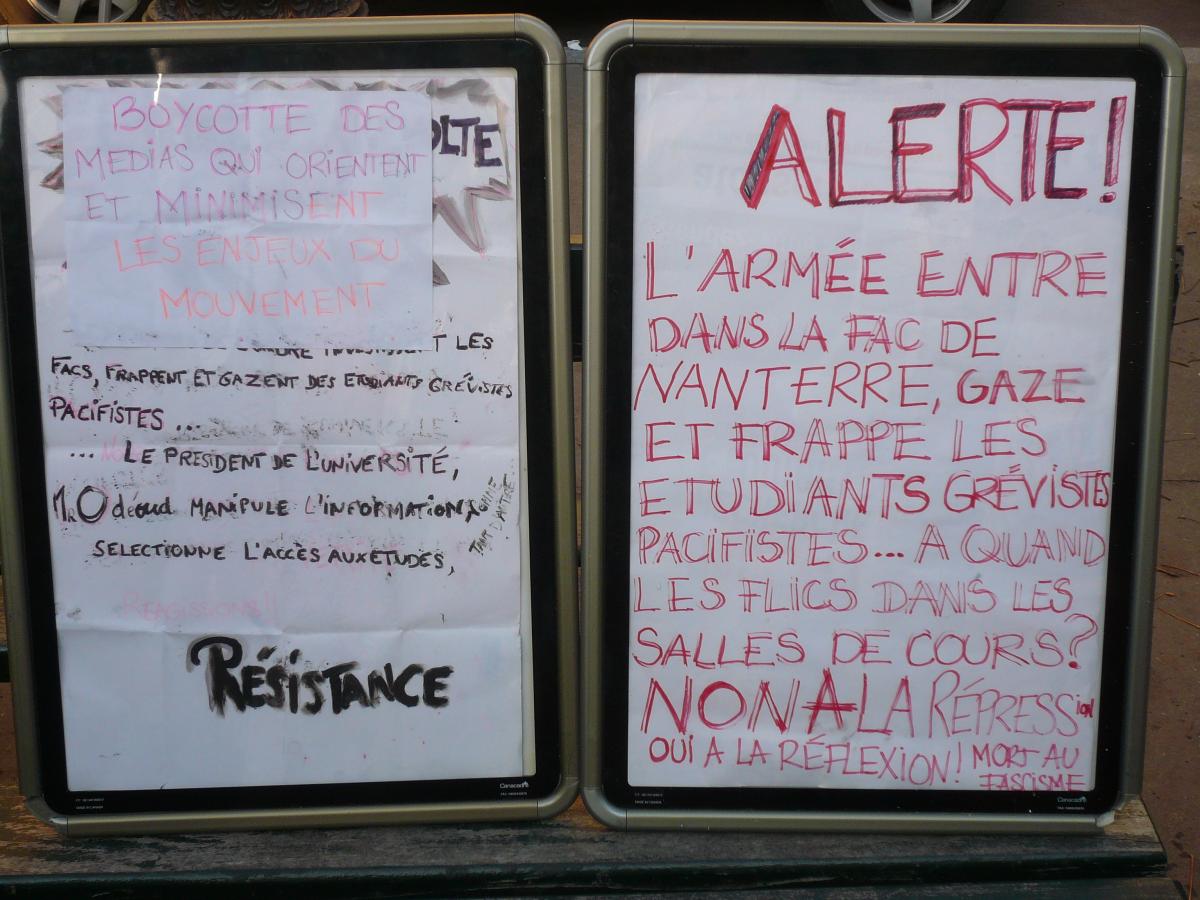 BOYCOTTE DES
MEDIAS QUI ORIENTENT
ET MINIMISENT
LES ENJEUX DU
MOUVEMENT
OLTE
T LES
FACS, FRAPPENT ET GAZENT DES ETUDIANTS GRÉVISTES
PACIFISTES ...
... LE PRESIDENT DE L'UNIVERSITÉ,
MR Odéoud MANIPULE L'INFORMATION,
COMME
TANT D'AUTRE
SELECTIONNE L'ACCÈS AUX ETUDES,
REAGISSONS!!
RÉSISTANCE
Canacadre
MADE IN CANADA
ALERTE!
L'ARMÉE ENTRE
DANS LA FAC DE
NANTERRE, GAZE
ET FRAPPE LES
ETUDIANTS GRÉVISTES
PACIFISTES... A QUAND
LES FLICS DANS LES
SALLES DE COURS?
NON A LA RÉPRESSION
OUI A LA RÉFLEXION! MORT AU
FASCISME
Canacadre
MADE IN CANADA